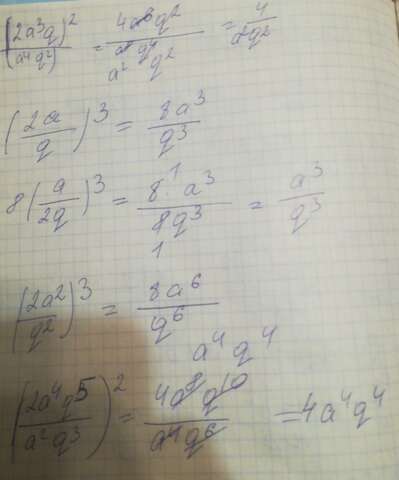 (2a³q)²/(a⁴q²) = 4a⁶q²/a⁸q⁴ a² q² = 4/a²q²
(2a/q)³ = 8a³/q³
8(a/2q)³ = 8¹a³/8q³ 1 = a³/q³
(2a²/q²)³ = 8a⁶/q⁶
a⁴ q⁴
(2a⁴q⁵/a²q³)² = 4a⁸q¹⁰/a⁴q⁶ = 4a⁴q⁴